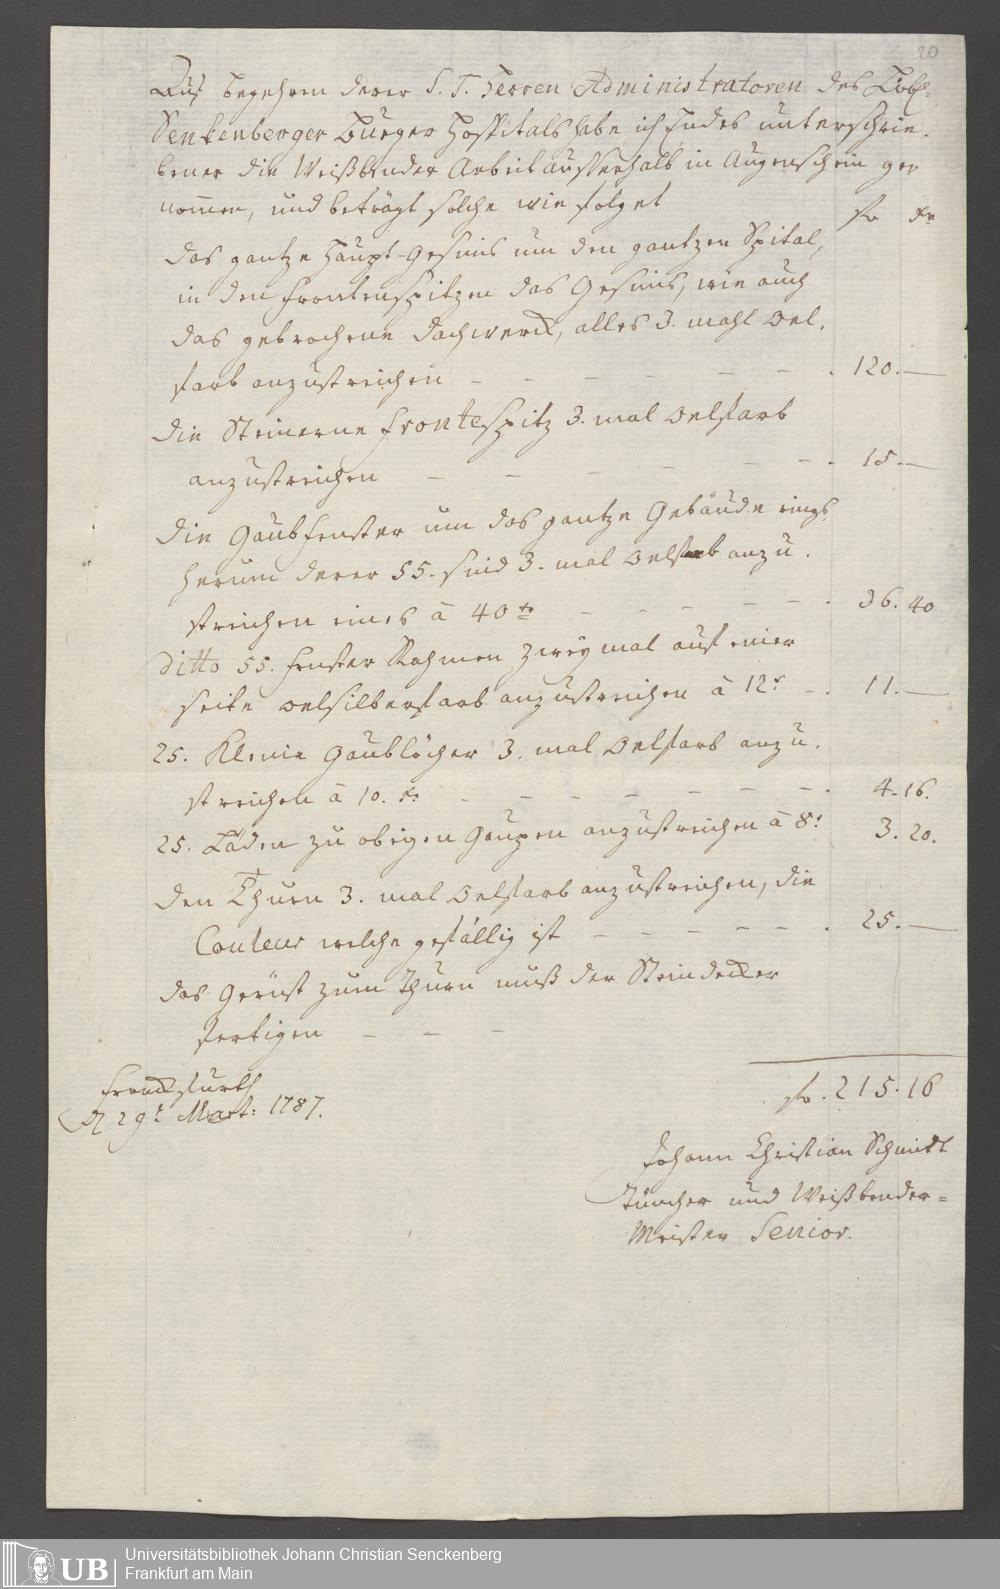 20
Auf begehren derer S. T. Herren Administratoren des Löbl.
Senkenberger Burger Hospitals habe ich Endes unterschrie-
bener die Weißbender Arbeit ausserhalb in Augenschein ge-
nommen, und beträgt solche wie folget
fr xr
das gantze Haupt-Gesims um den gantzen Spital,
in den Frontenspitzen das Gesims, wie auch
das gebrochene Dachwerck, alles 3. mahl Oel-
farb anzustreichen — — — — — — — . 120. —
die Steinerne Frontespitz 3. mal Oelfarb
anzustreichen — — — — — — . 15. —
die Gaubfenster um das gantze Gebäude rings
herum derer 55. sind 3. mal Oelfarb anzu-
streichen eines à 40 xr — — — — — . 36. 40
ditto 55. Fenster Rahmen zweymal auf einer
seite oelsilberfarb anzustreichen à 12 xr — . 11. —
25. Kleine Gaublöcher 3. mal Oelfarb anzu-
streichen à 10. xr. — — — — — — — . 4. 16.
25. Läden zu obigen Gaupen anzustreichen à 8 xr 3. 20.
den Thurn 3. mal Oelfarb anzustreichen, die
Couleur welche gefällig ist — — — — — . 25. —
das Gerüst zum Thurn muß der Steindecker
fertigen — — —
fr. 215. 16
Franckfurth
d 29t Mart: 1787.
Johann Christian Schmidt
Tüncher und Weißbender-
Meister Senior.
UB
Universitätsbibliothek Johann Christian Senckenberg
Frankfurt am Main